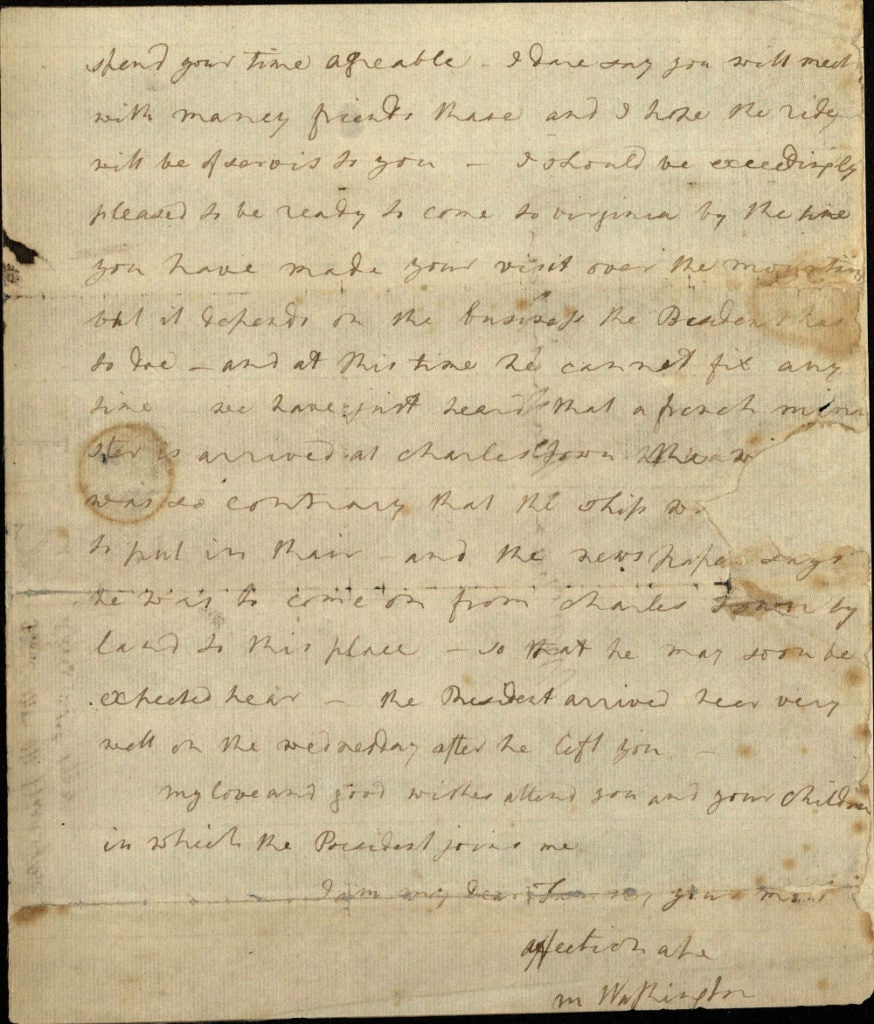 spend your time agreable - I dare say you will meet
with maney friends thare and I hope the ride
will be of servis to you - I should be exceedingly
pleased to be ready to come to virginia by the time
you have made your visit over the mountains
but it depends on the business the President has
to doe - and at this time he cannot fix any
time we have just heard that a french mini
ster is arrived at charlestown the w
was so contrary that the ship w
to put in thair - and the news paper says
he was to come on from charles town by
land to this place - so that he may soon be
expected hear - the President arrived hear very
well on the wednesday after he left you -
my love and good wishes attend you and your children
in which the President joins me
I am my dear Fanny your most
affectionate
m Washington